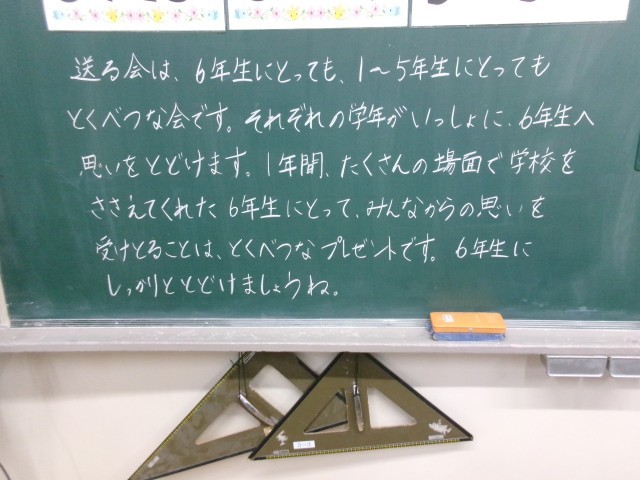 送る会は、6年生にとっても、1〜5年生にとっても
とくべつな会です。それぞれの学年がいっしょに、6年生へ
思いをとどけます。1年間、たくさんの場面で学校を
ささえてくれた6年生にとって、みんなからの思いを
受けとることは、とくべつなプレゼントです。6年生に
しっかりととどけましょうね。